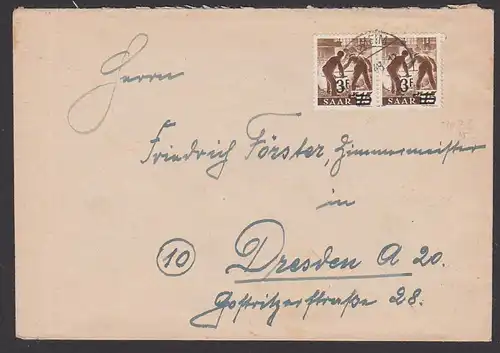 3F 3F
SAAR 15 SAAR 15
Herrn
Friedrich Förster, Zimmermeister
in
10 Dresden A 20.
Gostritzerstraße 28.